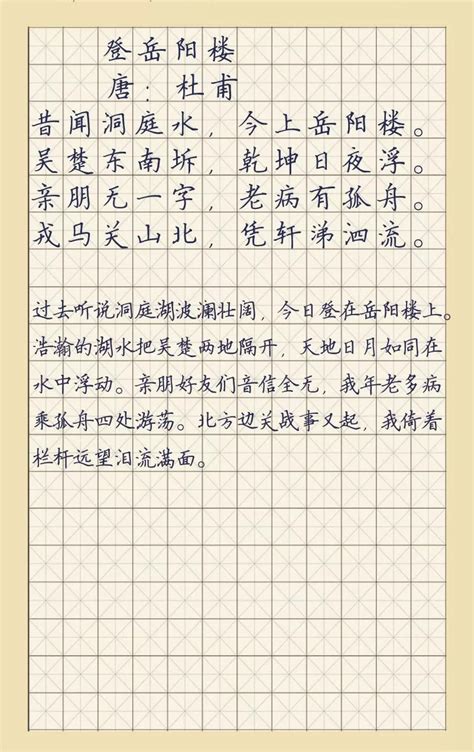 登岳阳楼
唐：杜甫
昔闻洞庭水，今上岳阳楼。
吴楚东南坼，乾坤日夜浮。
亲朋无一字，老病有孤舟。
戎马关山北，凭轩涕泗流。
过去听说洞庭湖波澜壮阔，今日登在岳阳楼上。
浩瀚的湖水把吴楚两地隔开，天地日月如同在
水中浮动。亲朋好友们音信全无，我年老多病
乘孤舟四处游荡。北方边关战事又起，我倚着
栏杆远望泪流满面。